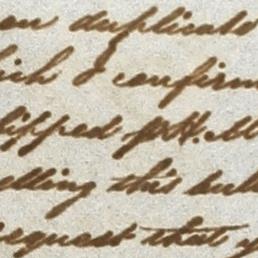 an duplicate
hich I confirm
lipped pr H. M
elling this bull
request that y